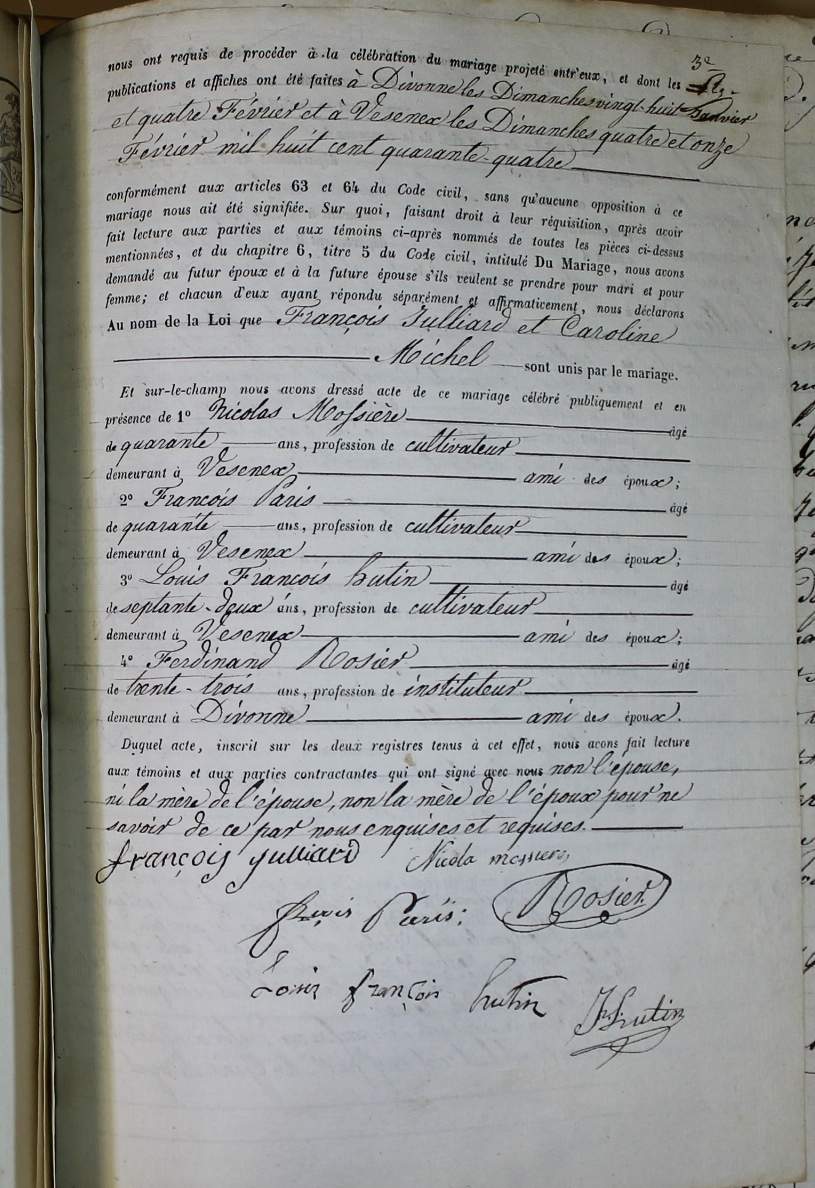 3e
nous ont requis de procéder à la célébration du mariage projeté entr'eux, et dont les
publications et affiches ont été faites à Divonne les Dimanches vingt-huit Janvier
et quatre Février et à Vesenex les Dimanches quatre et onze
Février mil huit cent quarante-quatre
conformément aux articles 63 et 64 du Code civil, sans qu'aucune opposition à ce
mariage nous ait été signifiée. Sur quoi, faisant droit à leur réquisition, après avoir
fait lecture aux parties et aux témoins ci-après nommés de toutes les pièces ci-dessus
mentionnées, et du chapitre 6, titre 5 du Code civil, intitulé Du Mariage, nous avons
demandé au futur époux et à la future épouse s'ils veulent se prendre pour mari et pour
femme; et chacun d'eux ayant répondu séparément et affirmativement, nous déclarons
Au nom de la Loi que François Julliard et Caroline
Michel sont unis par le mariage.
Et sur-le-champ nous avons dressé acte de ce mariage célébré publiquement et en
présence de 1o Nicolas Mossière âgé
de quarante ans, profession de cultivateur
demeurant à Vesenex ami des époux;
2o François Paris âgé
de quarante ans, profession de cultivateur
demeurant à Vesenex ami des époux;
3o Louis François hutin âgé
de septante-deux ans, profession de cultivateur
demeurant à Vesenex ami des époux;
4o Ferdinand Rosier âgé
de trente-trois ans, profession de instituteur
demeurant à Divonne ami des époux.
Duquel acte, inscrit sur les deux registres tenus à cet effet, nous avons fait lecture
aux témoins et aux parties contractantes qui ont signé avec nous non l'épouse,
ni la mère de l'épouse, non la mère de l'époux pour ne
savoir de ce par nous enquises et requises.
françois julliard Nicola
Paris: Rosier
Louis françois hutin hutin